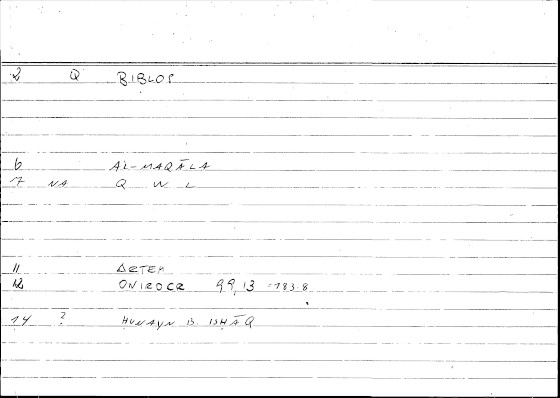 2 Q BIBLOS
6 AL-MAQĀLA
7 NA Q W L
11 ARTEM
12 ONIROCR 99,13 =183.8
14 ? HUNAYN B. ISHĀQ